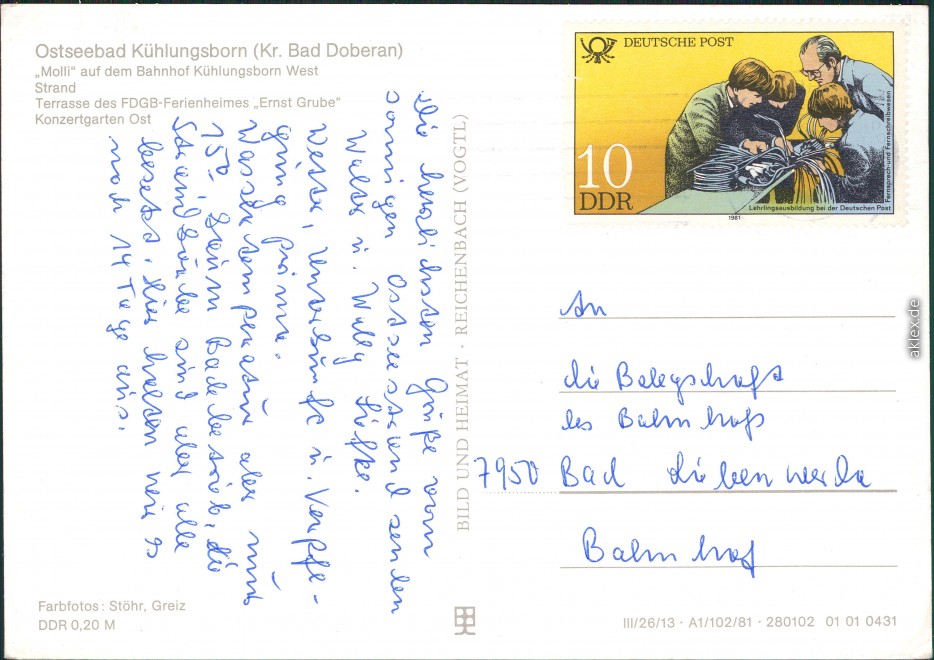 Ostseebad Kühlungsborn (Kr. Bad Doberan)
„Molli“ auf dem Bahnhof Kühlungsborn West
Strand
Terrasse des FDGB-Ferienheimes „Ernst Grube“
Konzertgarten Ost
Die herzlichsten Grüße vom
sonnigen Ostseestrand senden
Walter u. Wally
Wetter, Unterkunft u. Verpfle-
gung prima.
Wassertemperatur aber nur
15° kaum Badebetrieb, die
Strandkörbe sind aber alle
besetzt. Hier halten wir es
noch 14 Tage aus.
Farbfotos: Stöhr, Greiz
DDR 0,20 M
BILD UND HEIMAT · REICHENBACH (VOGTL)
DEUTSCHE POST
10
DDR
Lehrlingsausbildung bei der Deutschen Post
Fernsprech-und Fernschreibwesen
1981
An
die Belegschaft
des Bahnhofs
7950 Bad Liebenwerda
Bahnhof
III/26/13 · A1/102/81 · 280102 01 01 0431
aklex.de